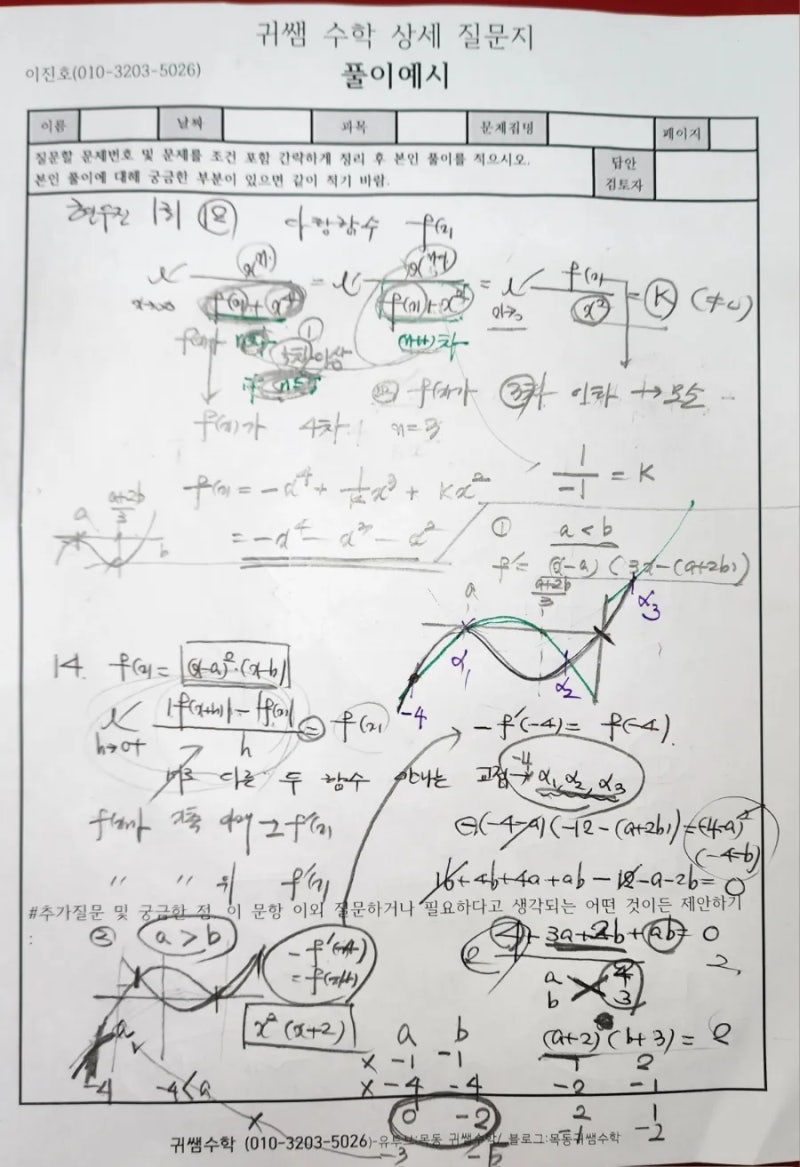 귀쌤 수학 상세 질문지
이진호(010-3203-5026)
풀이예시
이름 날짜 과목 문제집명 페이지
질문할 문제번호 및 문제를 조건 포함 간략하게 정리 후 본인 풀이를 적으시오.
본인 풀이에 대해 궁금한 부분이 있으면 같이 적기 바람.
답안
검토자
현우진 1회 12 다항함수 f(x)
f(x)
x²
= K (≠0)
f(x)가 3차 이하 → 모순
f(x)가 4차 n=3
1/-1 = K
f(x) = -x⁴ + 1/K x³ + Kx²
= -x⁴ - x³ - x²
a (a+2b)/3 b
① a < b
f' = (x-a)(3x-(a+2b))
a (a+2b)/3
-4 α₁ α₂ α₃
14. f(x) = (x-a)²·(x-b)
|f(x+h)| - |f(x)|
h→0+ h = f(x)
-f'(-4) = f(-4).
서로 다른 두 함수 만나는 교점 → -4 α₁, α₂, α₃
f(x)가 x축 아래 -f'(x)
〃 〃 위 f'(x)
⊖(-4-a)(-12-(a+2b)) = (-4-a)²
(-4-b)
16+4b+4a+ab-12-a-2b=0
#추가질문 및 궁금한 점, 이 문항 이외 질문하거나 필요하다고 생각되는 어떤 것이든 제안하기
:
a > b
-f'(-4)
= f(-4)
4+3a+2b+ab=0
a 4
b 3
x²(x+2)
(a+2)(b+3) = 2
a b
× -1 -1
× -4 -4
0 -2
-3 -5
1 2
-2 -1
2 1
-1 -2
-4 -4<a
귀쌤수학 (010-3203-5026)-유투브:목동 귀쌤수학/ 블로그:목동귀쌤수학